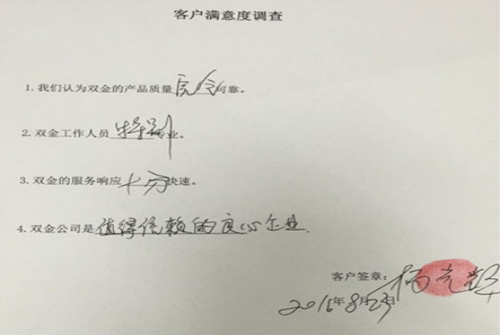 客户满意度调查
1.我们认为双金的产品质量可靠。
2.双金工作人员特别专业。
3.双金的服务响应十分快速。
4.双金公司是值得信赖的良心企业.
客户签章：杨
2016年8月23日